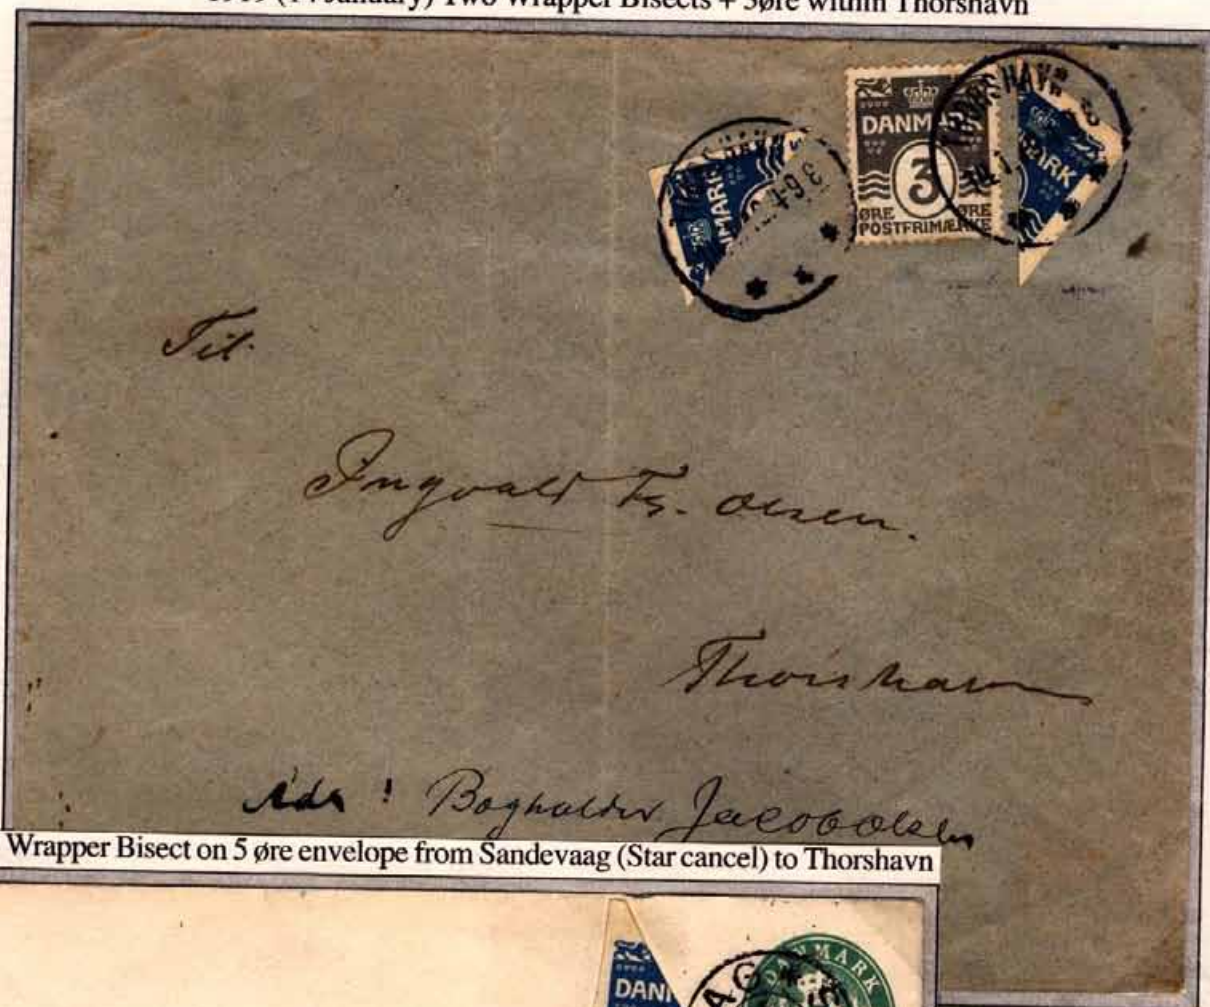 1919 (14 January) Two Wrapper Bisects + 3øre within Thorshavn
DANMARK
3
ØRE ØRE
POSTFRIMÆRKE
THORSHAVN
Til
Ingvald Fr. Olsen.
Thorshavn
Adr! Bogholder Jacob Olsen
Wrapper Bisect on 5 øre envelope from Sandevaag (Star cancel) to Thorshavn
DANMARK